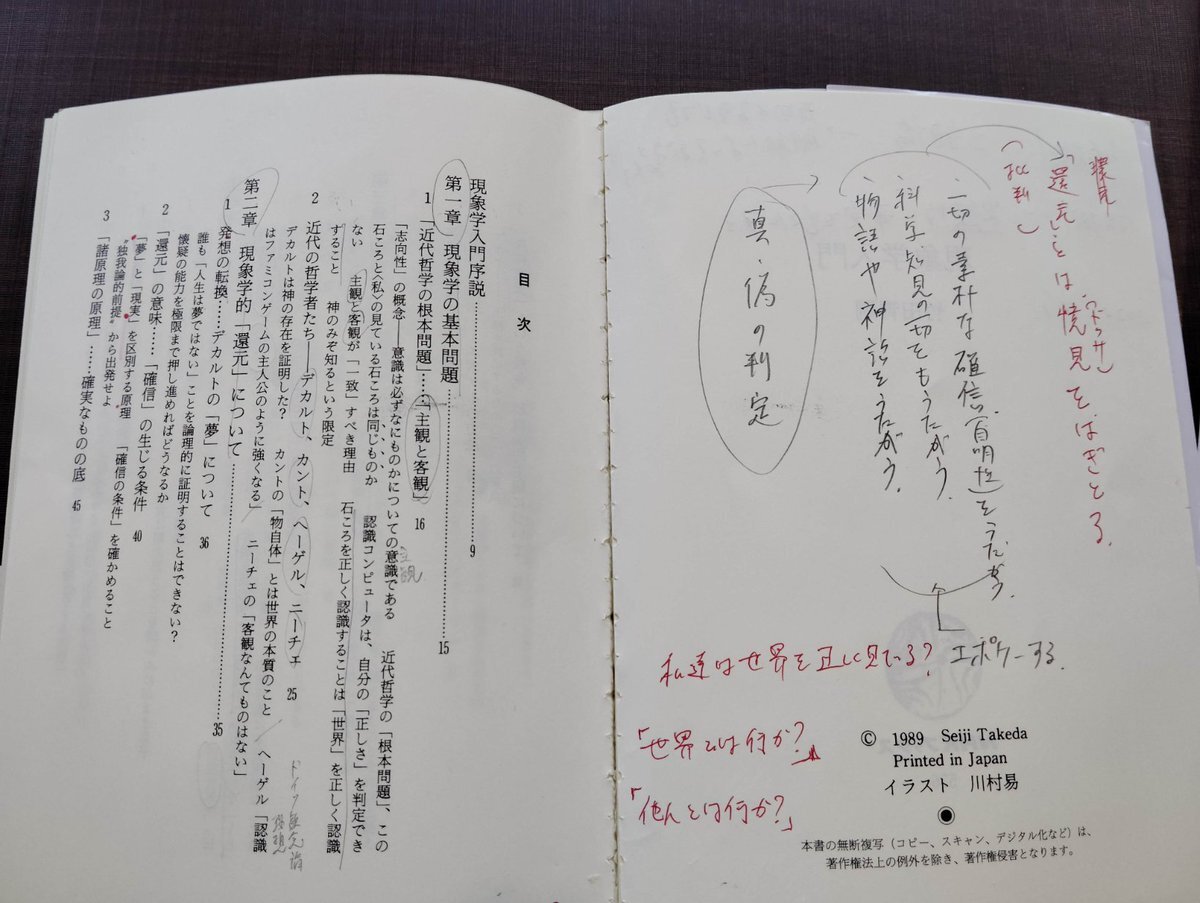 臆見
(ドクサ)
「還元」とは、憶見をはぎとる。
(批判)
・一切の素朴な確信(自明性)をうたがう。
・科学知見の一切をもうたがう。
・物語や神話をうたがう。
真・偽の判定
エポケーする。
私達は世界を正しく見ている?
「世界とは何か?」
「他人とは何か?」
© 1989 Seiji Takeda
Printed in Japan
イラスト 川村易
本書の無断複写(コピー、スキャン、デジタル化など)は、
著作権法上の例外を除き、著作権侵害となります。
目次
現象学入門序説……9
第一章 現象学の基本問題……15
1 「近代哲学の根本問題」……「主観と客観」 16
「志向性」の概念——意識は必ずなにものかについての意識である 近代哲学の「根本問題」、この
石ころと〈私〉の見ている石ころは同じものか 認識コンピュータは、自分の「正しさ」を判定でき
ない 主観と客観が「一致」すべき理由 石ころを正しく認識することは「世界」を正しく認識
すること 神のみぞ知るという限定
2 近代の哲学者たち——デカルト、カント、ヘーゲル、ニーチェ 25
デカルトは神の存在を証明した? カントの「物自体」とは世界の本質のこと ヘーゲル「認識
はファミコンゲームの主人公のように強くなる」 ニーチェの「客観なんてものはない」
第二章 現象学的「還元」について……35
1 発想の転換……デカルトの「夢」について 36
誰も「人生は夢ではない」ことを論理的に証明することはできない?
懐疑の能力を極限まで押し進めればどうなるか
2 「還元」の意味……「確信」の生じる条件 40
「夢」と「現実」を区別する原理 「確信の条件」を確かめること
“独我論的前提”から出発せよ
3 「諸原理の原理」……確実なものの底 45